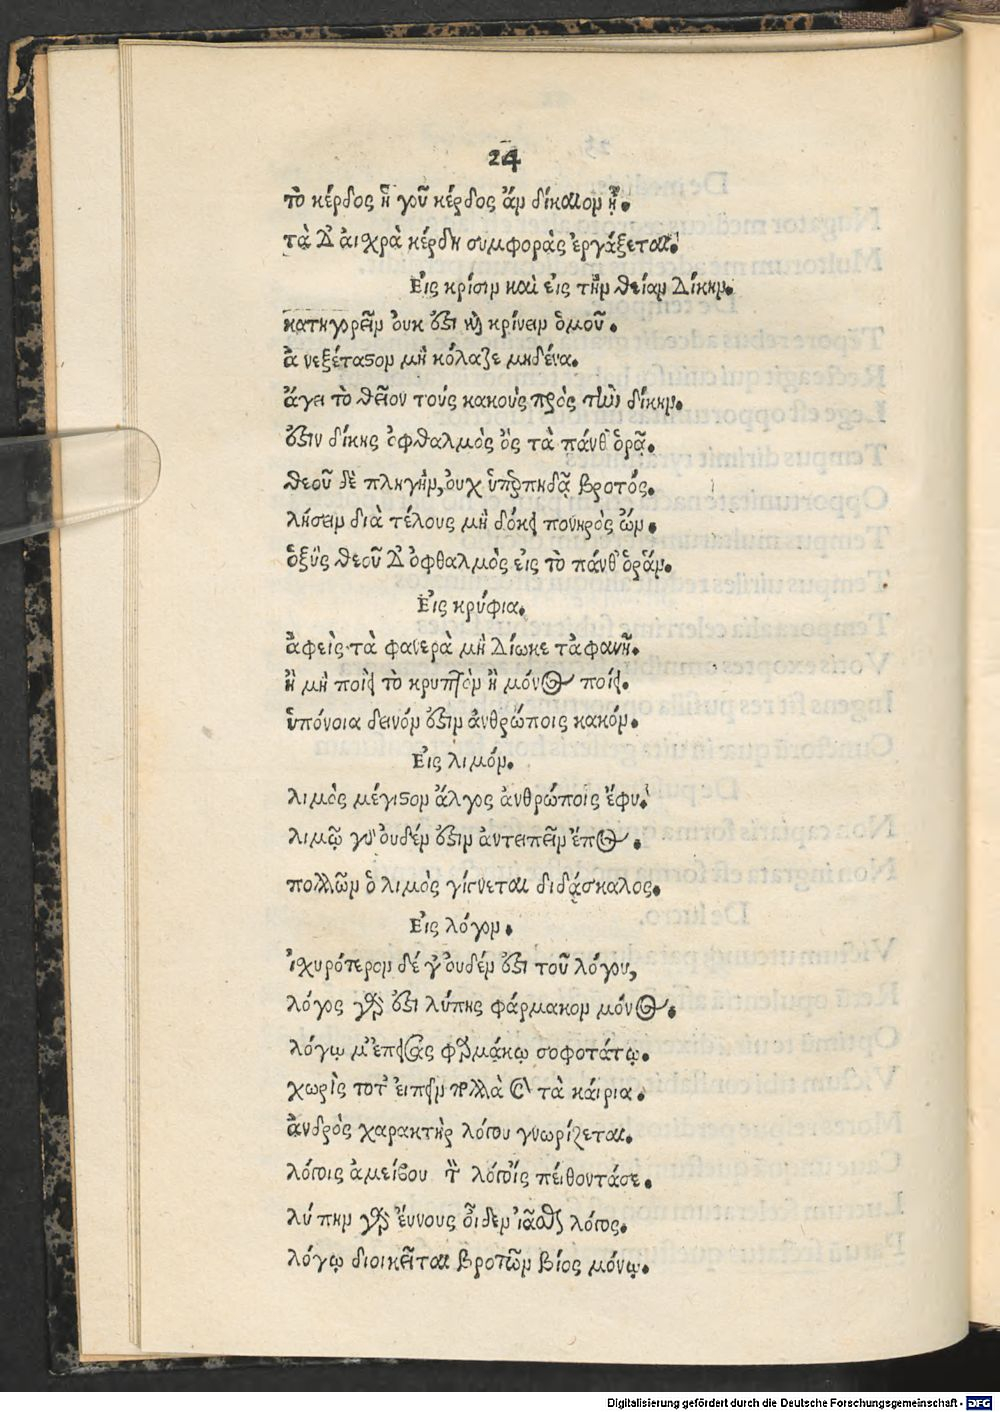 24
τὸ κέρδος ἢ γοῦ κέρδος ἂμ δίκαιομ ᾖ.
τὰ Δ' ἀιχρὰ κέρδη συμφορὰς ἐργάζεται.
Εἰς κρίσιμ καὶ εἰς τὴμ θείαμ Δίκημ.
κατηγορεῖμ ὀυκ ἔστι καὶ κρίνειμ ὁμοῦ.
ἀνεξέταστομ μὴ κόλαζε μηδένα.
ἄγει τὸ θεῖον τοὺς κακοὺς πρὸς τὴν δίκημ.
ἔστιν δίκης ὀφθαλμὸς ὃς τὰ πάνθ' ὁρᾷ.
θεοῦ δὲ πληγὴμ, ὀυχ ὑπερπηδᾷ βροτός.
λήσειμ διὰ τέλους μὴ δόκει πονηρὸς ὤμ.
ὀξὺς θεοῦ Δ' ὀφθαλμὸς εἰς τὸ πάνθ' ὁρᾶμ.
Εἰς κρύφια.
ἀφεὶς τὰ φανερὰ μὴ Δίωκε τἀφανῆ.
ἢ μὴ ποίει τὸ κρυπτὸμ ἢ μόνος ποίει.
ὑπόνοια δεινόμ ἔστιμ ἀνθρώποις κακόμ.
Εἰς λιμόμ.
λιμὸς μέγιστομ ἄλγος ἀνθρώποις ἔφυ.
λιμῷ γὰρ ὀυδέμ ἔστιμ ἀντειπεῖμ ἔπος.
πολλῶμ ὁ λιμὸς γίγνεται διδάσκαλος.
Εἰς λόγομ.
ἰχυρότερομ δέ γ' ὀυδέμ ἔστι τοῦ λόγου,
λόγος γὰρ ἔστι λύπης φάρμακομ μόνος.
λόγῳ μ' ἔπεισας φαρμάκῳ σοφοτάτῳ.
χωρὶς τότ' ειπεῖμ πολλὰ καὶ τὰ κάιρια.
ἀνδρὸς χαρακτὴρ λόγου γνωρίζεται.
λόγοις ἀμείβου λόγοις πείθοντάσε.
λύπημ γὰρ ἔυνους οἶδεμ ἰᾶσθαι λόγος.
λόγῳ διοικεῖται βροτῶμ βίος μόνῳ.
Digitalisierung gefördert durch die Deutsche Forschungsgemeinschaft - DFG